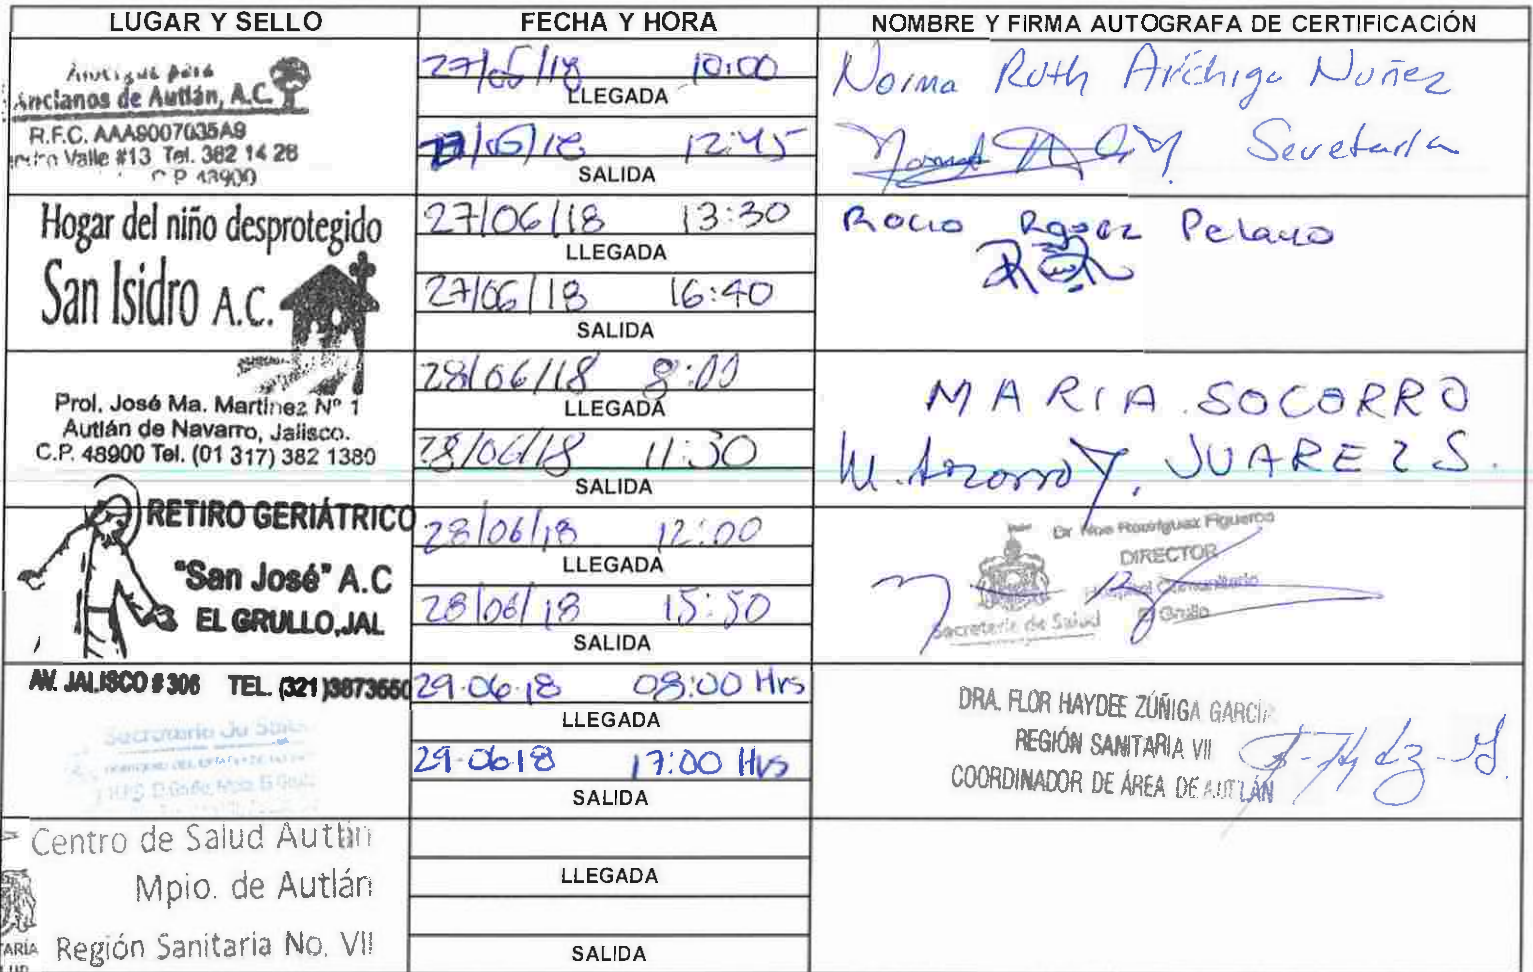 LUGAR Y SELLO FECHA Y HORA NOMBRE Y FIRMA AUTOGRAFA DE CERTIFICACIÓN
Ancianos de Autlán, A.C.
R.F.C. AAA9007035A9
Valle #13 Tel. 382 14 28
C.P. 48900
27/06/18 10:00
LLEGADA
27/06/18 12:45
SALIDA
Norma Ruth Aréchiga Nuñez
Secretaria
Hogar del niño desprotegido
San Isidro A.C.
27/06/18 13:30
LLEGADA
27/06/18 16:40
SALIDA
Rocio Rguez Pelayo
Prol. José Ma. Martinez Nº 1
Autlán de Navarro, Jalisco.
C.P. 48900 Tel. (01 317) 382 1380
28/06/18 8:00
LLEGADA
28/06/18 11:30
SALIDA
MARIA SOCORRO
JUAREZ S.
RETIRO GERIÁTRICO
"San José" A.C
EL GRULLO, JAL
28/06/18 12:00
LLEGADA
28/06/18 15:50
SALIDA
Dr Noe Rodriguez Figueroa
DIRECTOR
Hospital Comunitario
El Grullo
Secretaría de Salud
AV. JALISCO # 306 TEL. (321)3873550
29.06.18 08:00 Hrs
LLEGADA
29.06.18 17:00 Hrs
SALIDA
DRA. FLOR HAYDEE ZÚÑIGA GARCÍA
REGIÓN SANITARIA VII
COORDINADOR DE ÁREA DE AUTLÁN
Centro de Salud Autlán
Mpio. de Autlán
Región Sanitaria No. VII
LLEGADA
SALIDA